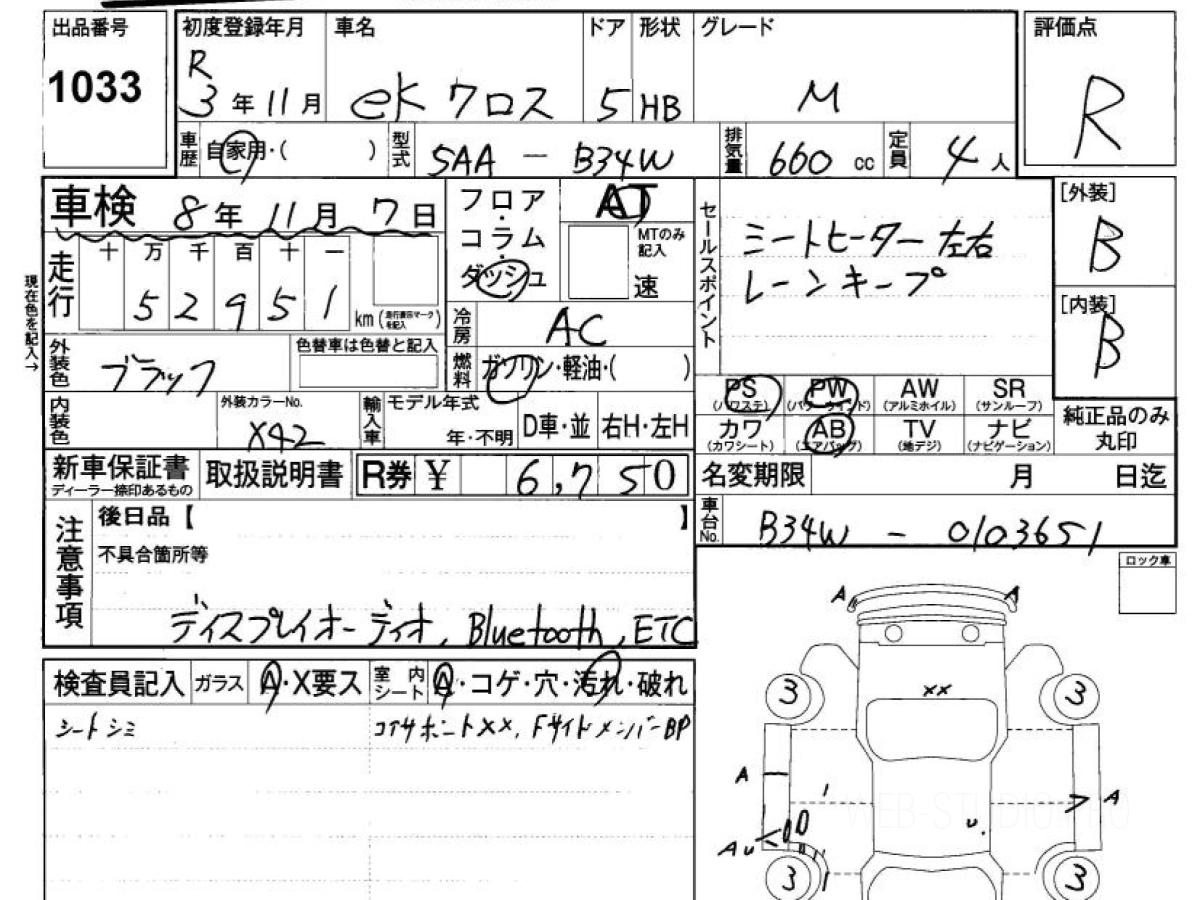 出品番号 初度登録年月 車名 ドア 形状 グレード 評価点
1033 R 3年11月 eKクロス 5 HB M R
車歴 自家用・( ) 型式 SAA - B34W 排気量 660 cc 定員 4人
車検 8年11月7日
フロア・コラム・ダッシュ AT
MTのみ記入 速
セールスポイント
シートヒーター左右
レーンキープ
[外装] B
[内装] B
現在色を記入→
走行 十 万 千 百 十 一
5 2 9 5 1 km (走行表示マークを記入)
冷房 AC
外装色 ブラック 色替車は色替と記入
燃料 ガソリン・軽油・( )
PS (パワステ) PW (パワーウインド) AW (アルミホイル) SR (サンルーフ)
カワ (カワシート) AB (エアバッグ) TV (地デジ) ナビ (ナビゲーション)
純正品のみ丸印
内装色 外装カラーNo. X42 輸入車 モデル年式 年・不明 D車・並 右H・左H
新車保証書 ディーラー捺印あるもの 取扱説明書 R券 ¥ 6,750
名変期限 月 日迄
車台No. B34W - 0103651
注意事項 後日品【 】
不具合箇所等
ディスプレイオーディオ, Bluetooth, ETC
ロック車
検査員記入 ガラス A・X要ス 室内シート A・コゲ・穴・汚れ・破れ
シートシミ コアサポートXX, FサイドメンバーBP
A A
XX
3 3
A A
WEB-STUDIO.PRO
U
AU
3 3